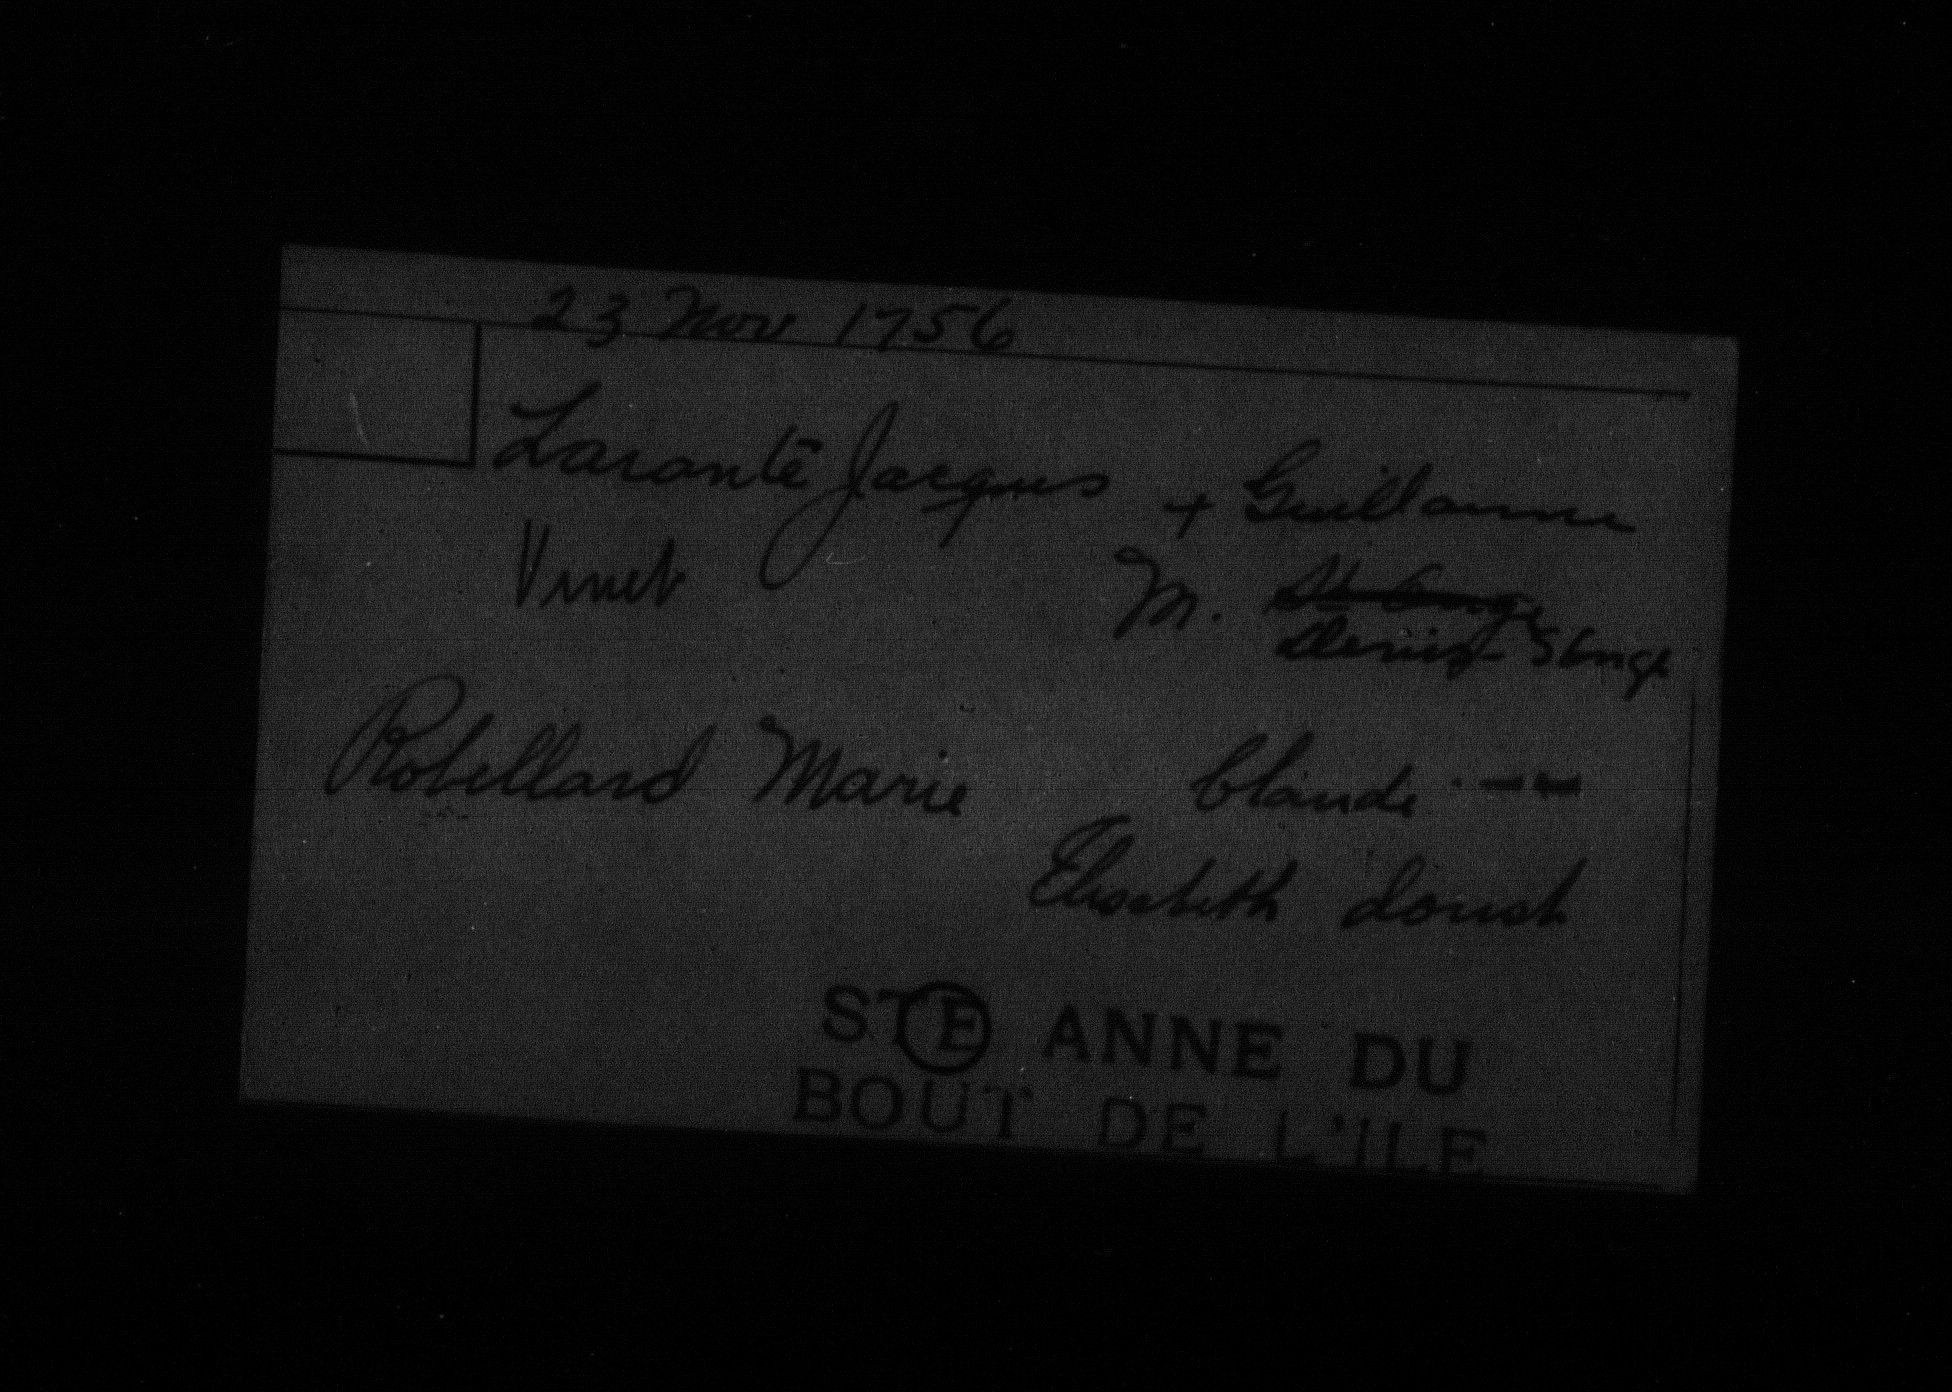 23 Nov 1756
Larante Jacques + Guillaume
Vinet M. St Onge
Denis StOnge
Robillard Marie Claude --
Elisabeth
STE ANNE DU
BOUT DE L'ILE